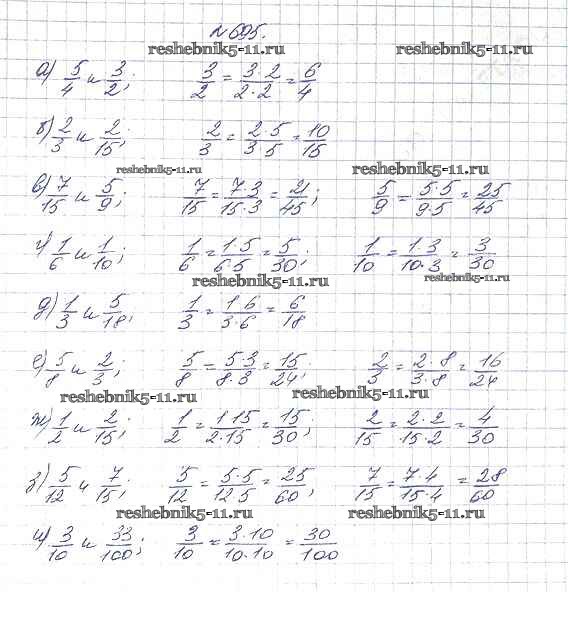 №695.
reshebnik5-11.ru reshebnik5-11.ru
а) 5/4 и 3/2; 3/2 = 3·2/2·2 = 6/4
б) 2/3 и 2/15; 2/3 = 2·5/3·5 = 10/15
reshebnik5-11.ru reshebnik5-11.ru
в) 7/15 и 5/9; 7/15 = 7·3/15·3 = 21/45; 5/9 = 5·5/9·5 = 25/45
г) 1/6 и 1/10; 1/6 = 1·5/6·5 = 5/30; 1/10 = 1·3/10·3 = 3/30
reshebnik5-11.ru reshebnik5-11.ru
д) 1/3 и 5/18; 1/3 = 1·6/3·6 = 6/18
е) 5/8 и 2/3; 5/8 = 5·3/8·3 = 15/24; 2/3 = 2·8/3·8 = 16/24
reshebnik5-11.ru reshebnik5-11.ru
ж) 1/2 и 2/15; 1/2 = 1·15/2·15 = 15/30; 2/15 = 2·2/15·2 = 4/30
з) 5/12 и 7/15; 5/12 = 5·5/12·5 = 25/60; 7/15 = 7·4/15·4 = 28/60
reshebnik5-11.ru reshebnik5-11.ru
и) 3/10 и 33/100; 3/10 = 3·10/10·10 = 30/100